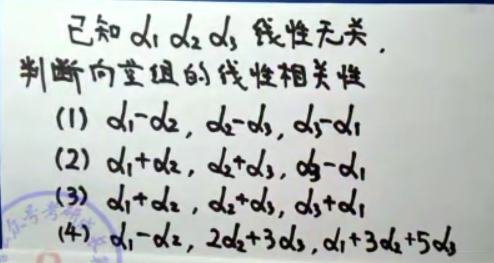 已知 α₁ α₂ α₃ 线性无关.
判断向量组的线性相关性
(1) α₁-α₂, α₂-α₃, α₃-α₁
(2) α₁+α₂, α₂+α₃, α₃-α₁
(3) α₁+α₂, α₂+α₃, α₃+α₁
(4) α₁-α₂, 2α₂+3α₃, α₁+3α₂+5α₃
众号考研